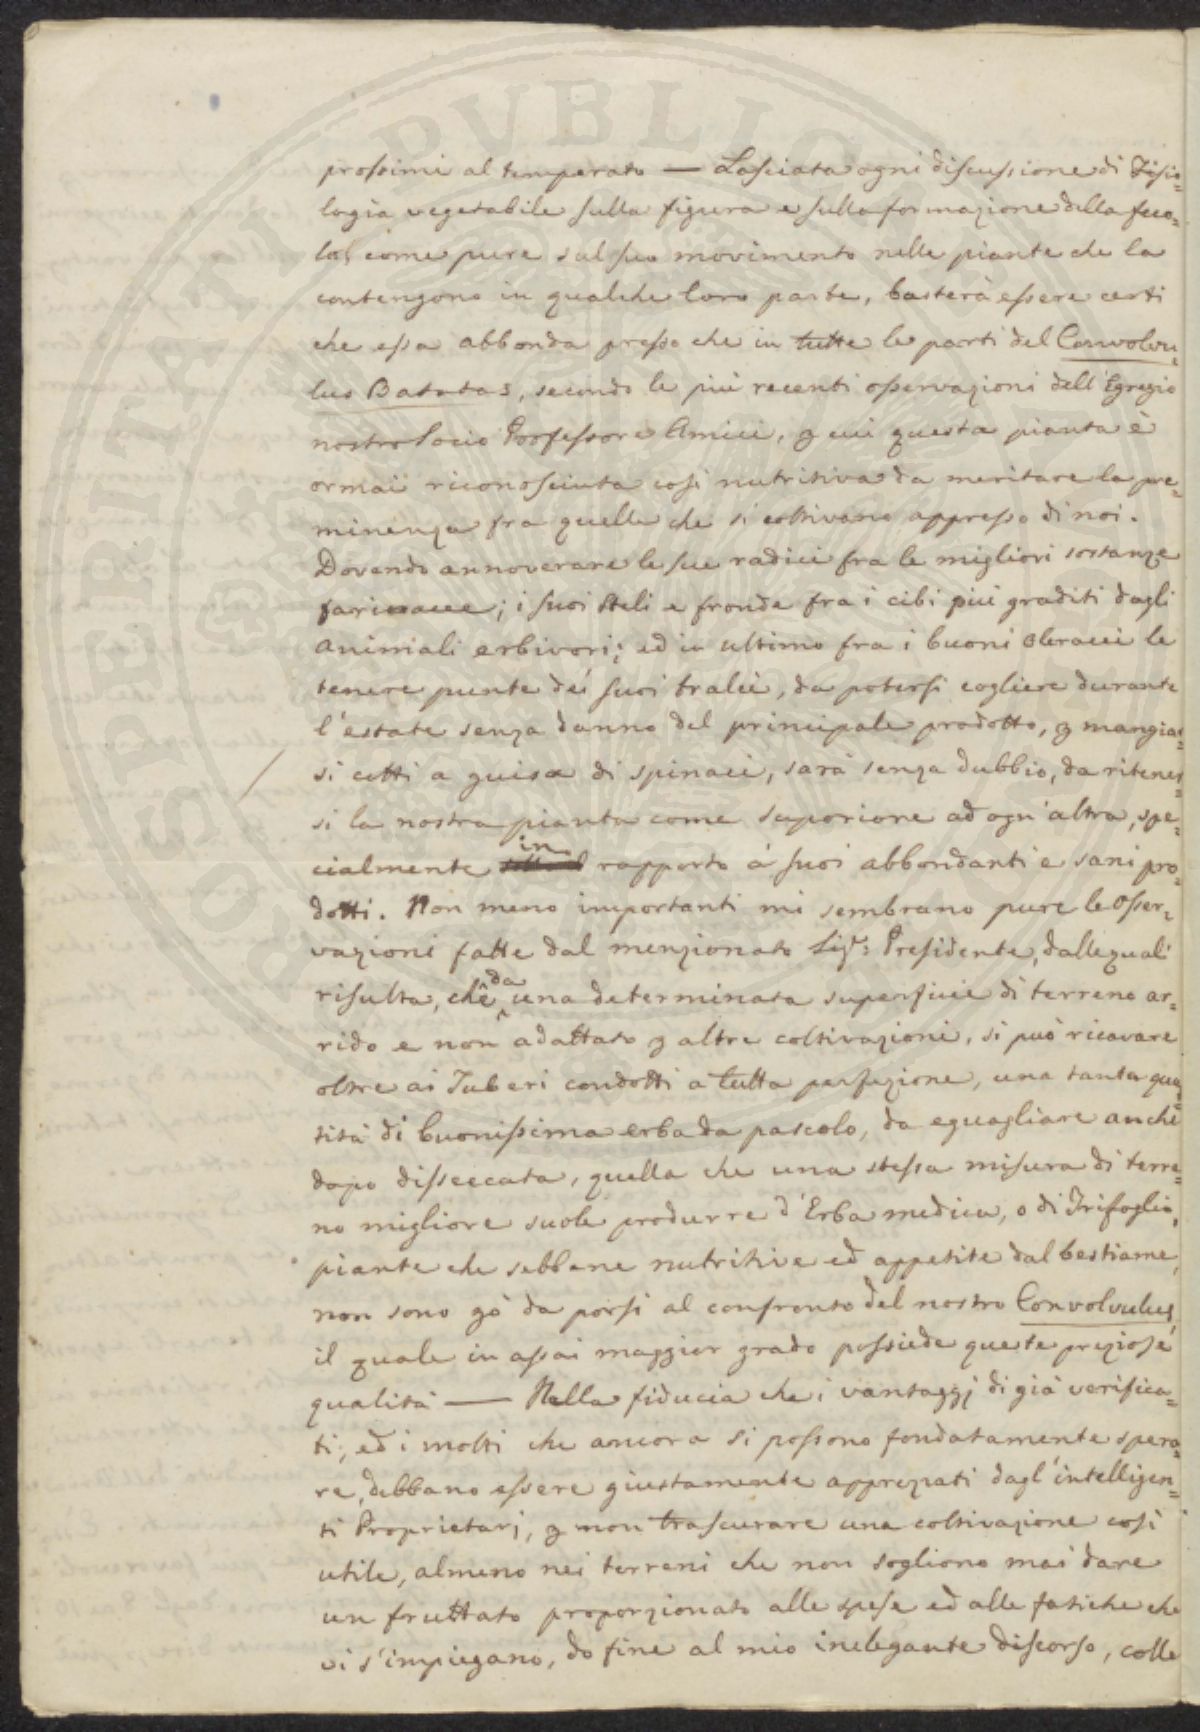 prossimi al temperato — Lasciata ogni discussione di Fisio-
logia vegetabile sulla figura e sulla formazione della feco-
la, come pure sul suo movimento nelle piante che la
contengono in qualche loro parte, basterà essere certi
che essa abbonda presso che in tutte le parti del Convolvu-
lus Batatas, secondo le più recenti osservazioni dell'Egregio
nostro Socio Professore Amici, p cui questa pianta è
ormai riconosciuta così nutritiva da meritare la pre-
minenza fra quelle che si coltivano appresso di noi.
Dovendo annoverare le sue radici fra le migliori sostanze
farinacee; i suoi steli e fronde fra i cibi più graditi dagli
animali erbivori; ed in ultimo fra i buoni oleracei le
tenere punte dei suoi tralci, da potersi cogliere durante
l'estate senza danno del principale prodotto, p mangiar-
si cotti a guisa di spinaci, sarà senza dubbio, da ritener-
si la nostra pianta come superiore ad ogn'altra, spe-
cialmente in rapporto a' suoi abbondanti e sani pro-
dotti. Non meno importanti mi sembrano pure le osser-
vazioni fatte dal menzionato Sigr: Presidente, dalle quali
risulta, che da una determinata superficie di terreno ar-
rido e non adattato p altre coltivazioni, si può ricavare
oltre ai Tuberi condotti a tutta perfezione, una tanta qua-
tità di buonissima erba da pascolo, da eguagliare anche
dopo disseccata, quella che una stessa misura di terre-
no migliore suole produrre d'Erba medica, o di Trifoglio,
piante che sebbene nutritive ed appetite dal bestiame,
non sono pò da porsi al confronto del nostro Convolvulus,
il quale in assai maggior grado possiede queste preziose
qualità — Nella fiducia che i vantaggj di già verifica-
ti, ed i molti che ancora si possono fondatamente spera-
re, debbano essere giustamente apprezzati dagl'intelligen-
ti Proprietarj, p non trascurare una coltivazione così
utile, almeno nei terreni che non sogliono mai dare
un fruttato proporzionato alle spese ed alle fatiche che
vi s'impiegano, do fine al mio inelegante discorso, colle